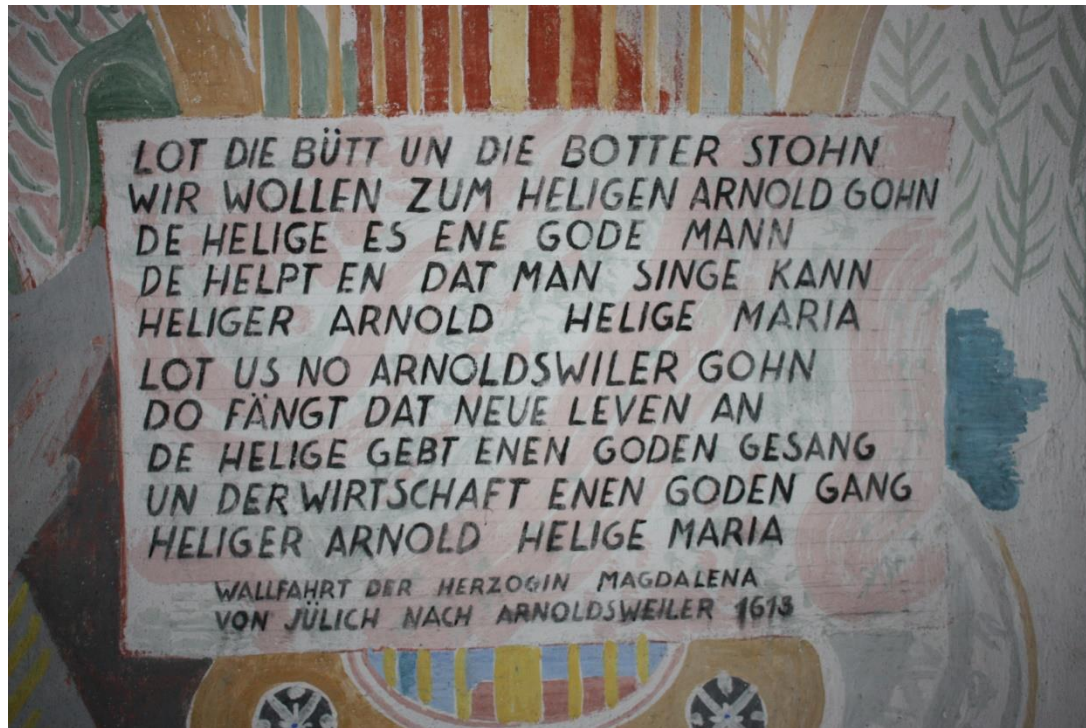 LOT DIE BÜTT UN DIE BOTTER STOHN
WIR WOLLEN ZUM HELIGEN ARNOLD GOHN
DE HELIGE ES ENE GODE MANN
DE HELPT EN DAT MAN SINGE KANN
HELIGER ARNOLD HELIGE MARIA
LOT US NO ARNOLDSWILER GOHN
DO FÄNGT DAT NEUE LEVEN AN
DE HELIGE GEBT ENEN GODEN GESANG
UN DER WIRTSCHAFT ENEN GODEN GANG
HELIGER ARNOLD HELIGE MARIA
WALLFAHRT DER HERZOGIN MAGDALENA
VON JÜLICH NACH ARNOLDSWEILER 1613